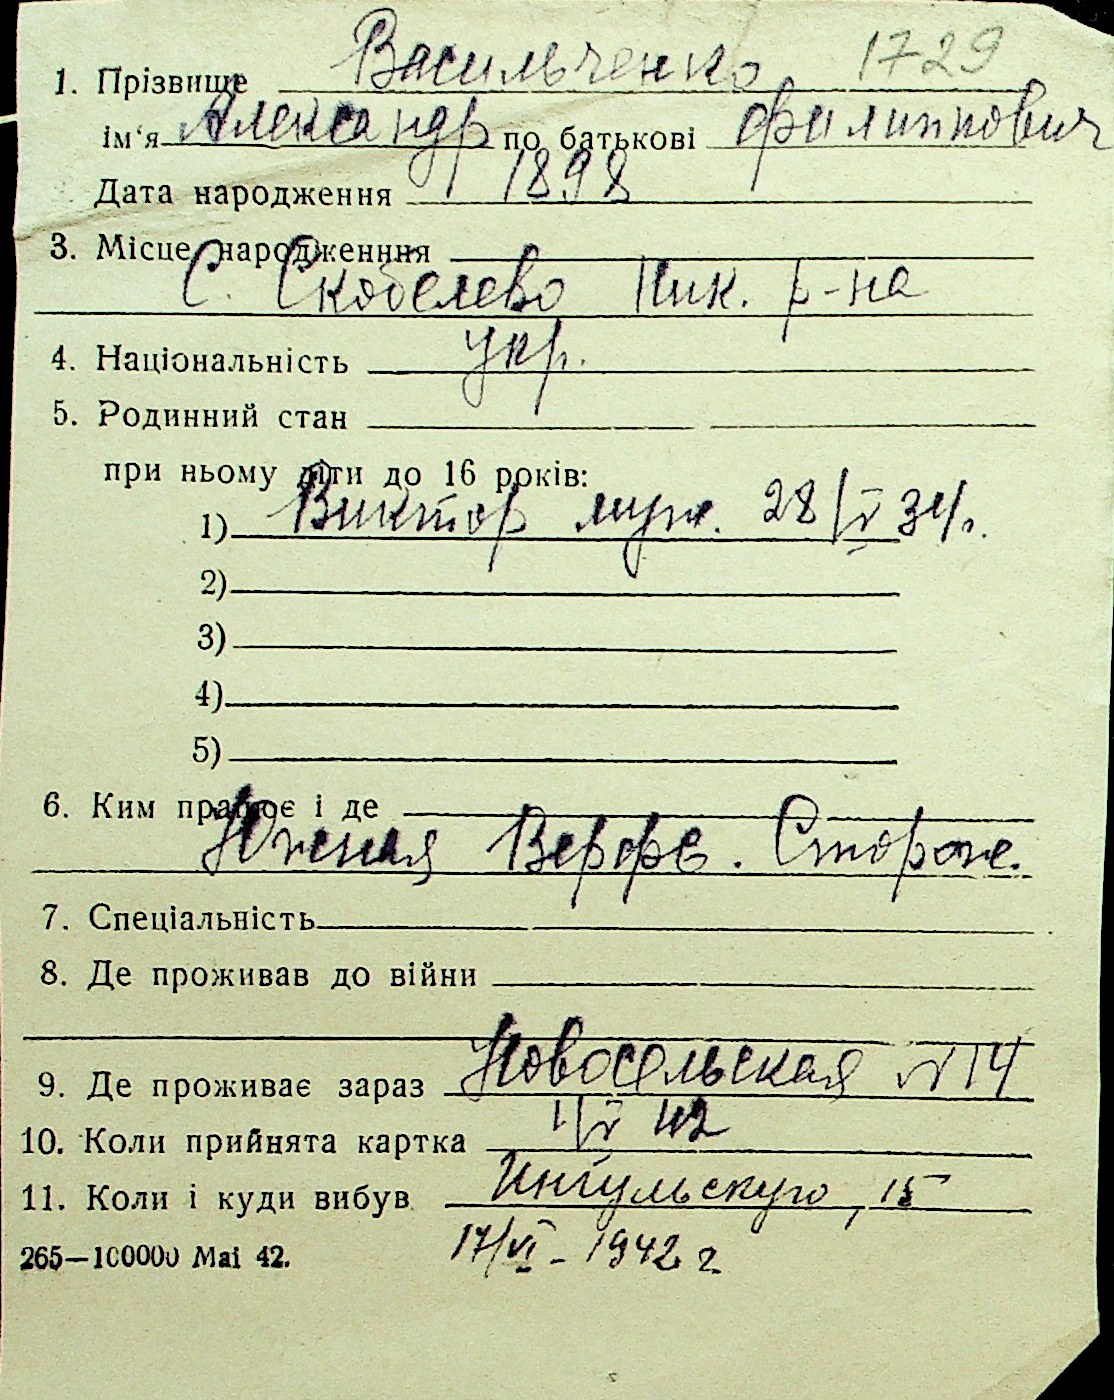 1. Прізвище Васильченко 1729
ім'я Александр по батькові Филиппович
Дата народження 1898
3. Місце народженння
С. Скобелево Ник. р-на
4. Національність укр.
5. Родинний стан
при ньому діти до 16 років:
1) Виктор муж. 28/V 34г.
2)
3)
4)
5)
6. Ким працює і де
Южная Верфь. Сторож.
7. Спеціальність
8. Де проживав до війни
9. Де проживає зараз Новосельская №14
10. Коли прийнята картка 1/V 42
11. Коли і куди вибув Ингульскую, 15
265—100000 Mai 42. 17/VI - 1942 г